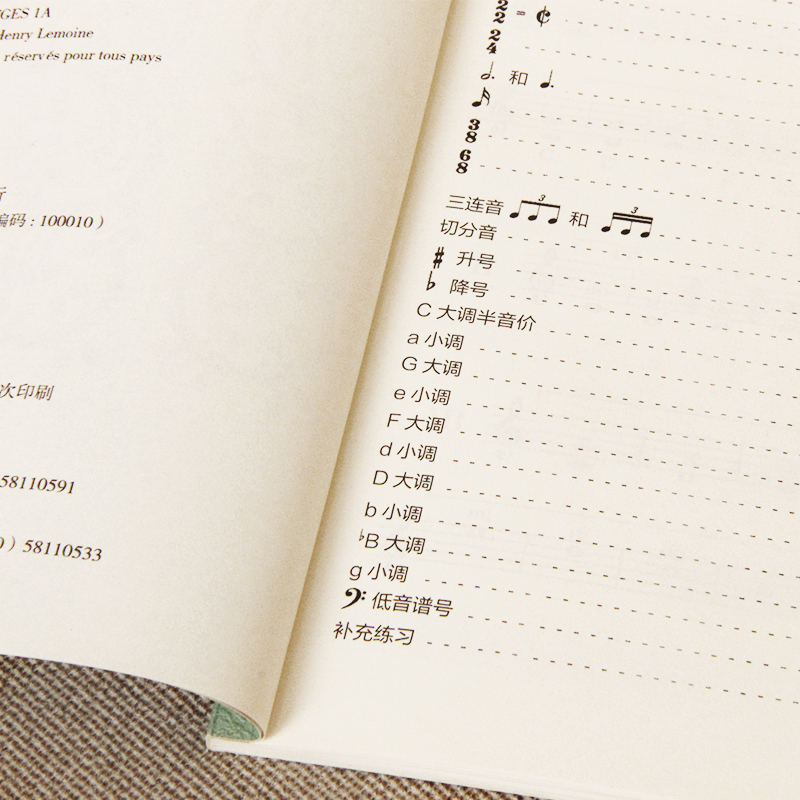 GES 1A
Henry Lemoine
réservés pour tous pays
编码：100010）
次印刷
58110591
0）58110533
2/2 = 𝄵
2/4
𝅗𝅥. 和 ♩.
𝅘𝅥𝅯
3/8
6/8
三连音 3 和 3
切分音
♯ 升号
♭ 降号
C 大调半音价
a 小调
G 大调
e 小调
F 大调
d 小调
D 大调
b 小调
♭B 大调
g 小调
𝄢 低音谱号
补充练习